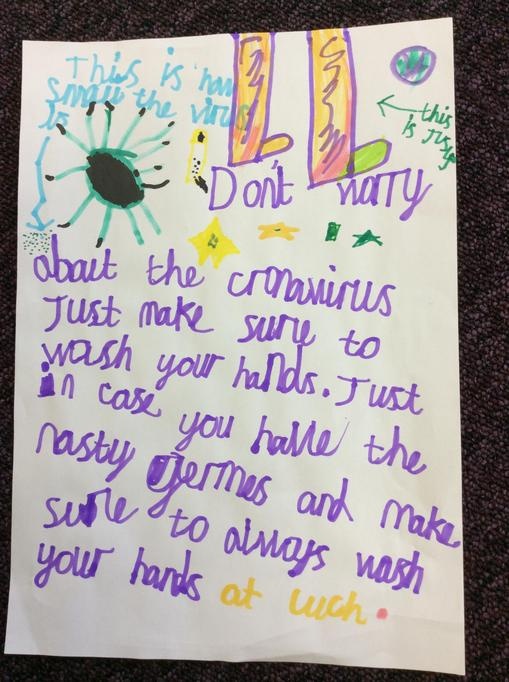 This is how
small the virus
is
this
is
Don't worry
about the cronavirus
Just make sure to
wash your hands. Just
in case you halle the
nasty germes and make
sure to always wash
your hands at luch.